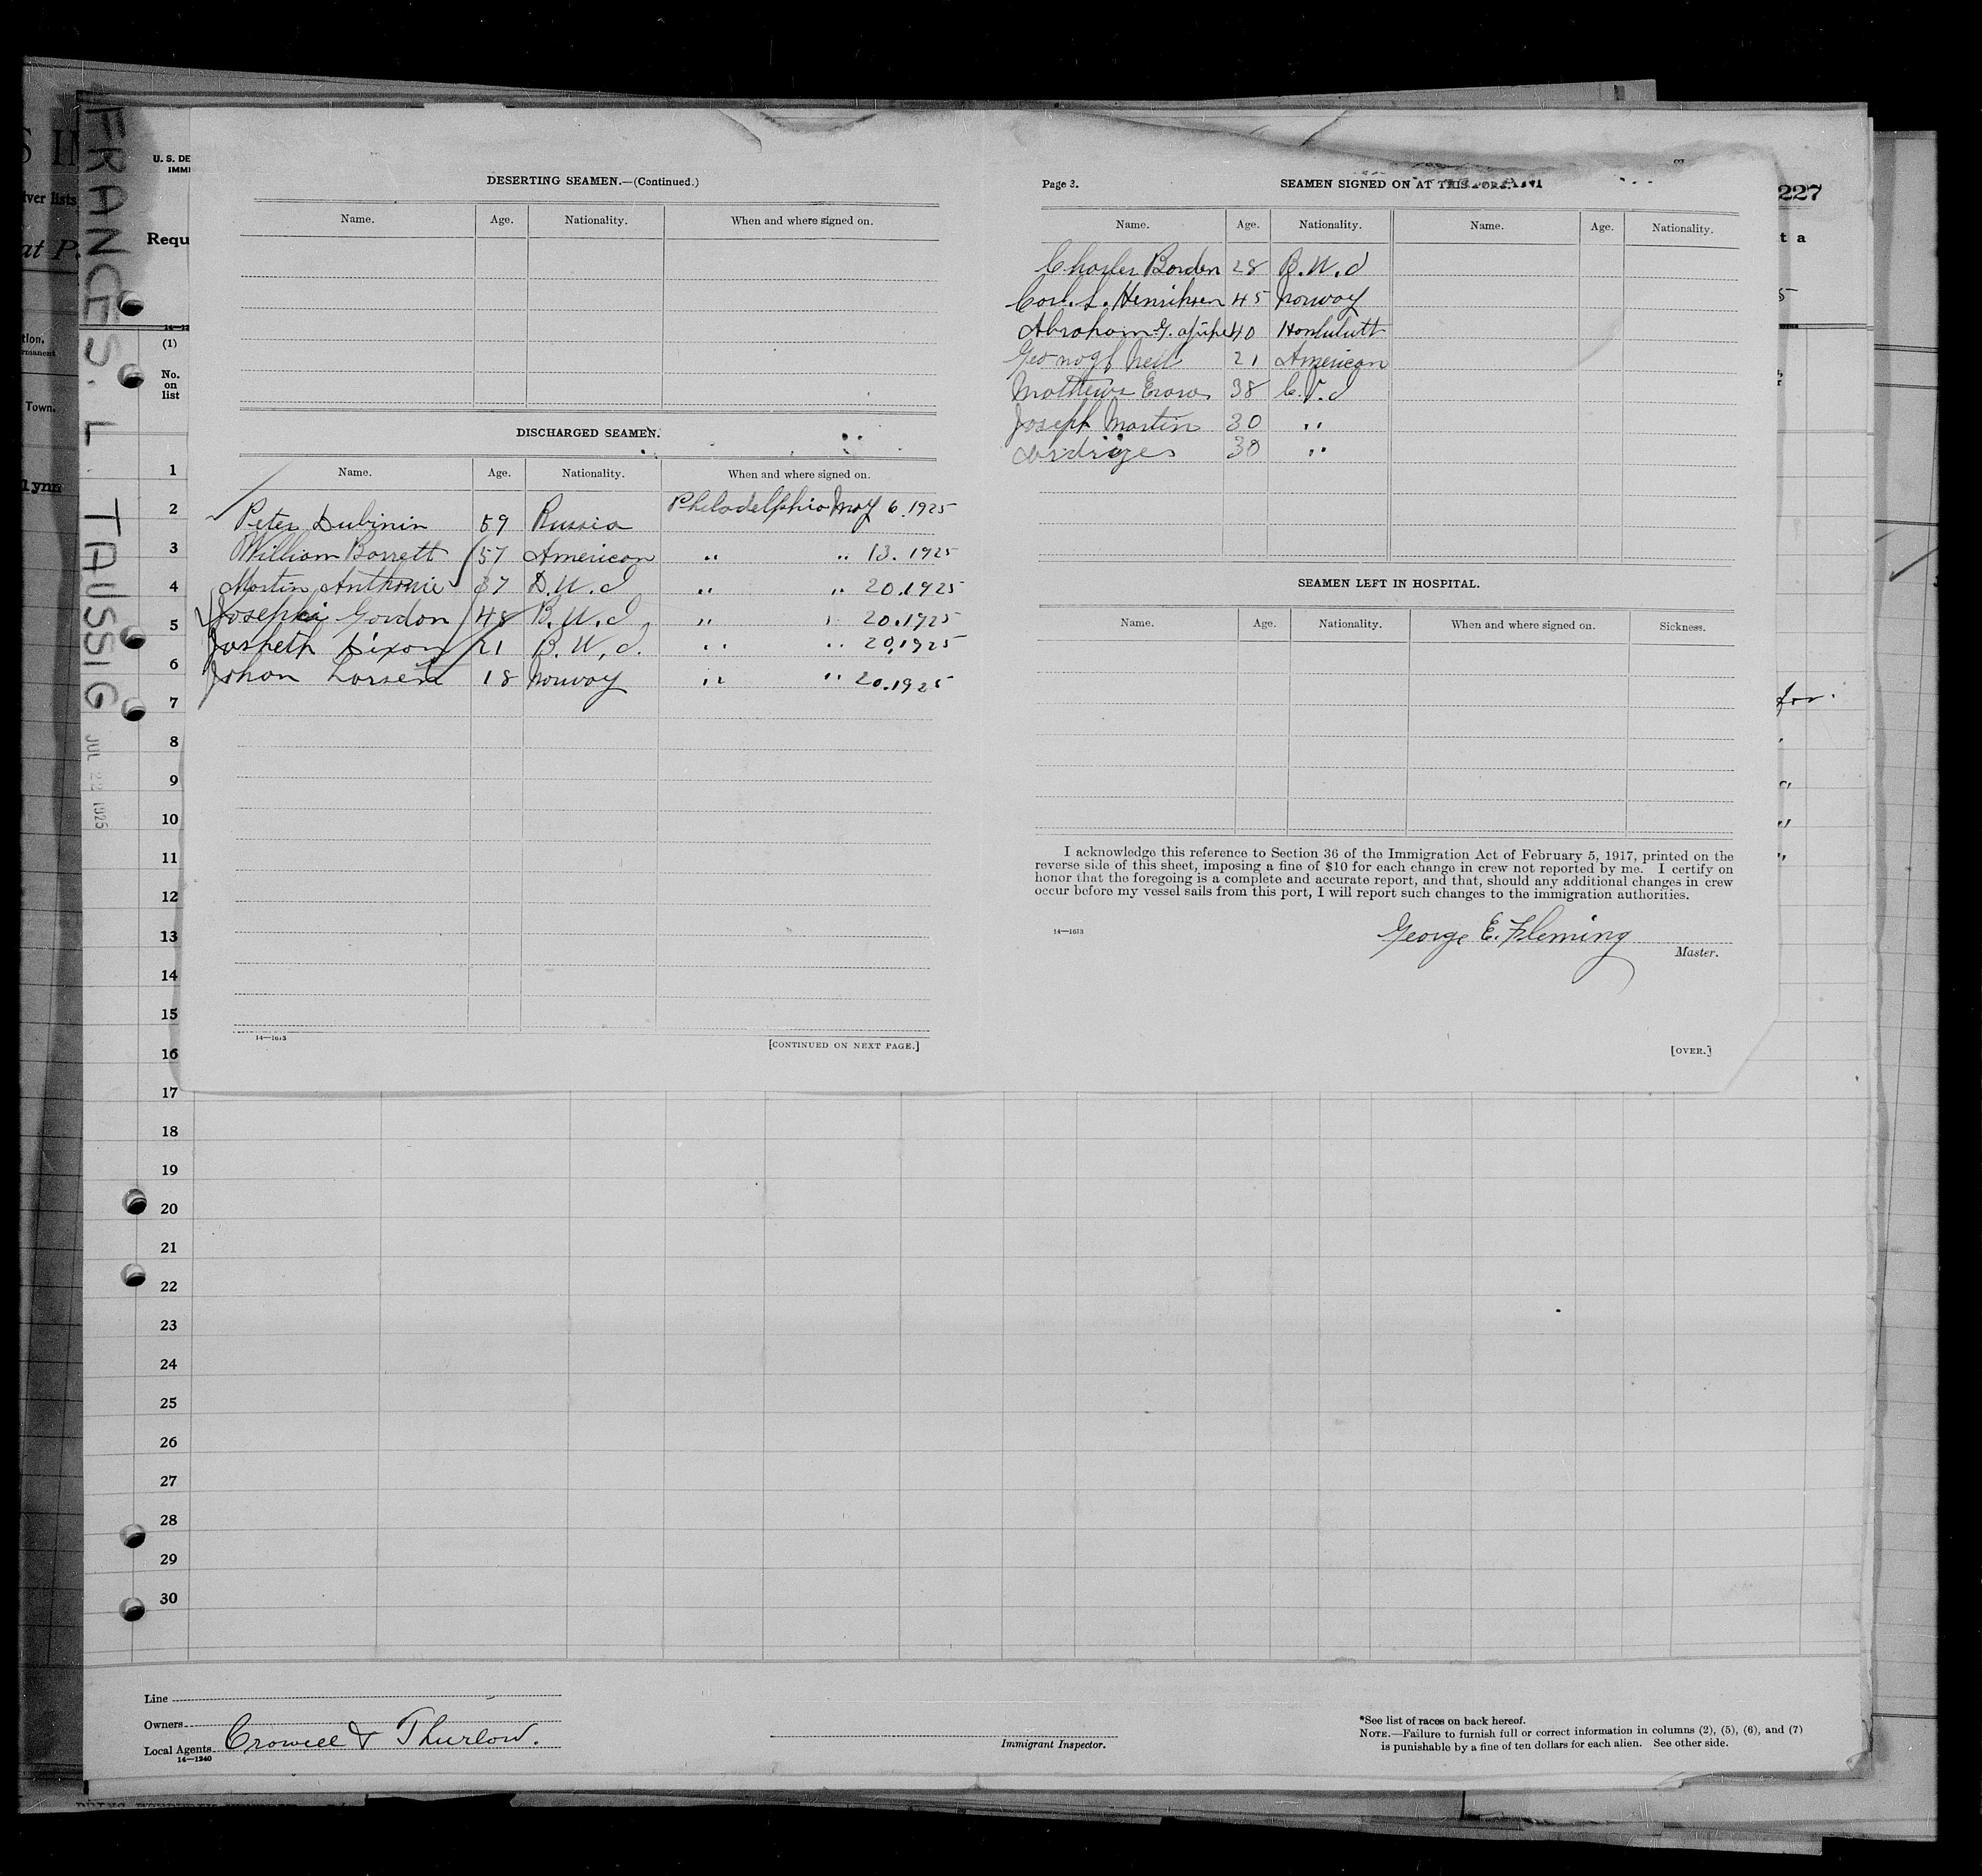 FRANCES. L. TAUSSIG
JUL 22 1925
U. S. DE
IMMI
Requ
14—12
(1)
No.
on
list
1
2
3
4
5
6
7
8
9
10
11
12
13
14
15
16
17
18
19
20
21
22
23
24
25
26
27
28
29
30
DESERTING SEAMEN.—(Continued.)
Name. Age. Nationality. When and where signed on.
DISCHARGED SEAMEN.
Name. Age. Nationality. When and where signed on.
Peter Dubinin 59 Russia Philadelphia May 6. 1925
William Barrett 57 American " " 13. 1925
Martin Anthonie 37 D. W. I " " 20. 1925
Joseph Gordon 48 B. W. I " " 20. 1925
Dixon 21 B. W. I. " " 20. 1925
Johan Larsen 18 Norway " " 20. 1925
14—1613
[CONTINUED ON NEXT PAGE.]
Page 3.
SEAMEN SIGNED ON AT THIS PORT.
Name. Age. Nationality. Name. Age. Nationality.
Charles Borden 28 B. W. I
Carl. L. Henriksen 45 Norway
Abraham 40
21 American
Mathews 38 C. V. I
Joseph Martin 30 "
30 "
SEAMEN LEFT IN HOSPITAL.
Name. Age. Nationality. When and where signed on. Sickness.
I acknowledge this reference to Section 36 of the Immigration Act of February 5, 1917, printed on the
reverse side of this sheet, imposing a fine of $10 for each change in crew not reported by me. I certify on
honor that the foregoing is a complete and accurate report, and that, should any additional changes in crew
occur before my vessel sails from this port, I will report such changes to the immigration authorities.
14—1613
George E. Fleming
Master.
[OVER.]
227
t a
for.
iver lists
at P.
tion.
rmanent
Town.
lynn
Line
Owners
Local Agents Crowell & Thurlow.
14—1240
Immigrant Inspector.
*See list of races on back hereof.
NOTE.—Failure to furnish full or correct information in columns (2), (5), (6), and (7)
is punishable by a fine of ten dollars for each alien. See other side.